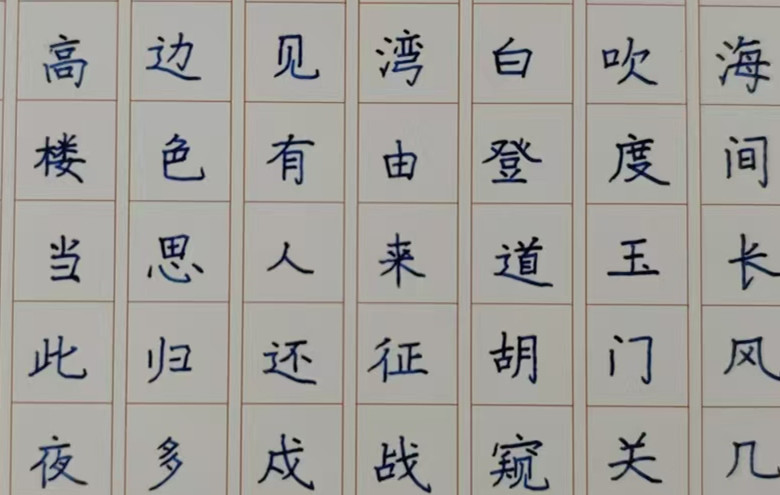 海间长风几
吹度玉门关
白登道胡窥
湾由来征战
见有人还戍
边色思归多
高楼当此夜